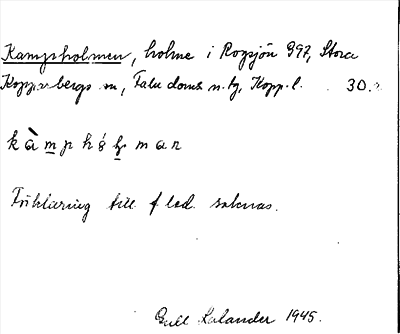 Kampholmen, holme i Rogsjön 397, Stora
Kopparbergs sn, Falu doms. n. tg, Kopp. l. 30.
k à m p h ó l m a n
Förklaring till f led. saknas.
Gull Salander 1945.